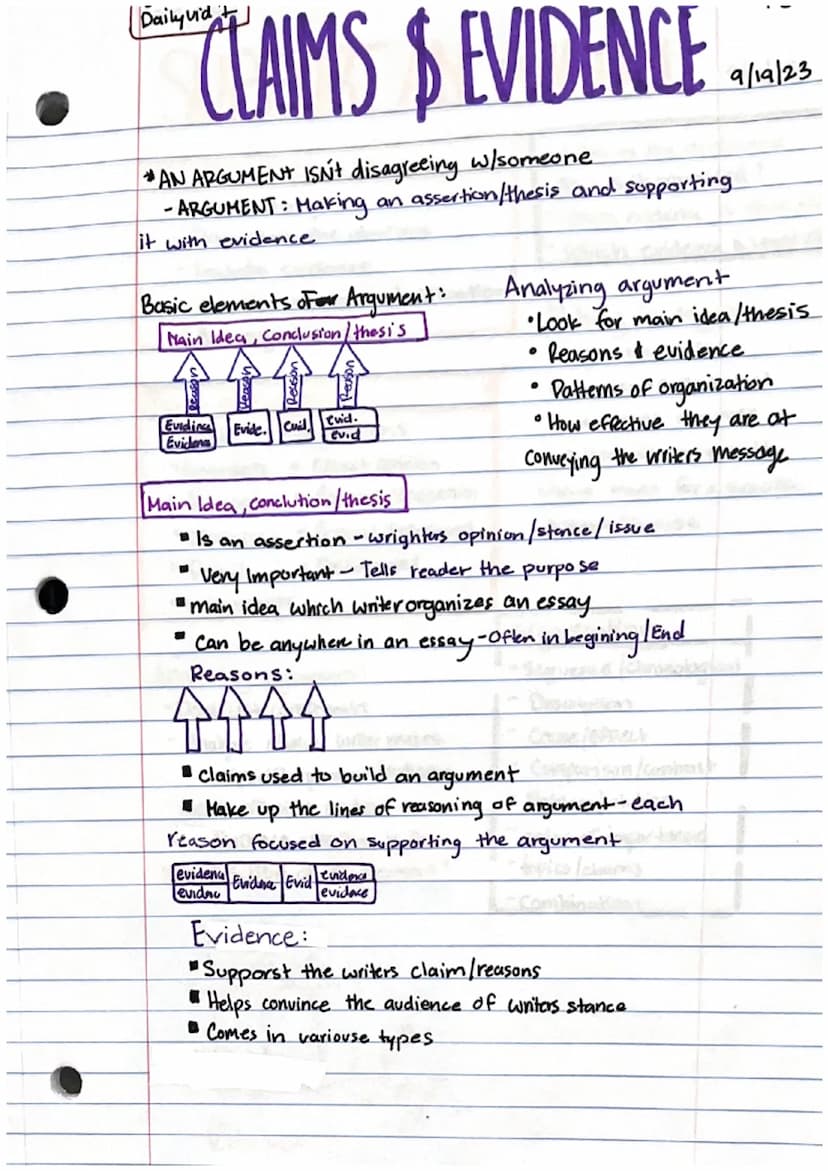 Dailyvid +
CLAIMS $ EVIDENCE
9/19/23
*AN ARGUMENT ISN't disagreeing w/someone
- ARGUMENT: Making an assertion/thesis and supporting
it with evidence
Basic elements of Argument:
Main Idea, Conclusion/thesis
Reason Reason Reason Reason
Evidince Evide. Evid. Evid.
Evidence Evid
Analyzing argument
•Look for main idea/thesis
• Reasons & evidence
• Patterns of organization
• How effective they are at
conveying the writers message
Main Idea, conclution/thesis
▪ Is an assertion - wrighters opinion/stance/issue
▪ Very Important - Tells reader the purpose
▪ main idea which writer organizes an essay
▪ can be anywhere in an essay - often in begining/End
Reasons:
▪ claims used to build an argument
▪ Make up the lines of reasoning of argument - each
reason focused on supporting the argument
evidence Evidence Evid evidence
evidnc evidace
Evidence:
▪ Supporst the writers claim/reasons
▪ Helps convince the audience of writers stance
▪ Comes in variouse types